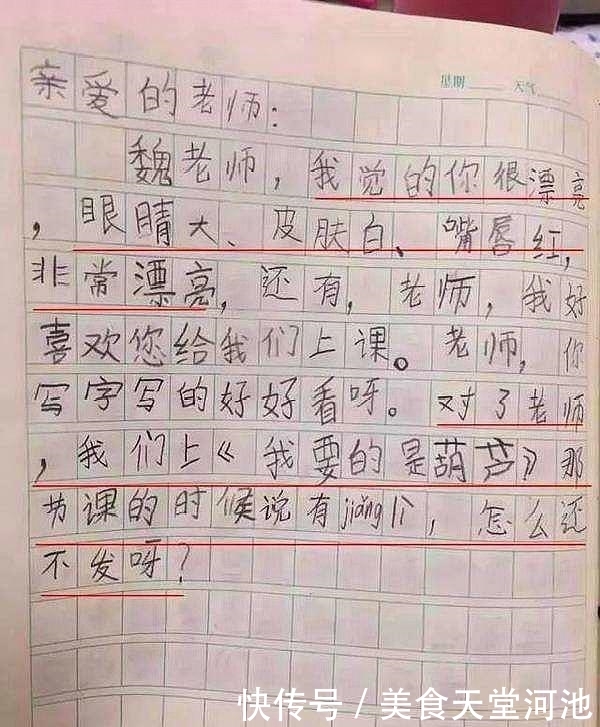 星期 天气
亲爱的老师：
魏老师，我觉的你很漂亮
，眼睛大、皮肤白、嘴唇红，
非常漂亮，还有，老师，我好
喜欢您给我们上课。老师，你
写字写的好好看呀。对了老师
，我们上《我要的是葫芦》那
节课的时候说有jiǎnglì，怎么还
不发呀？
快传号 / 美食天堂河池